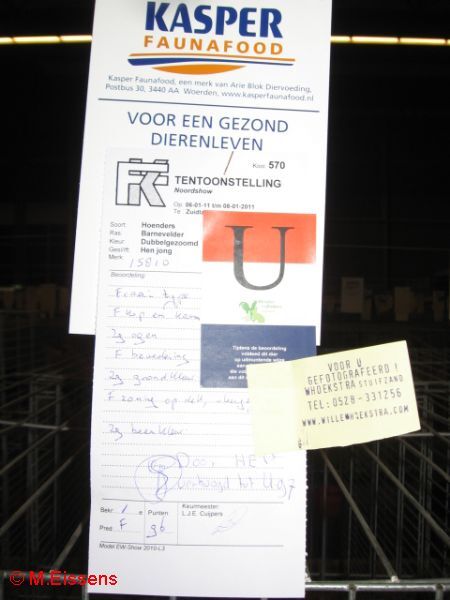 KASPER
FAUNAFOOD
Kasper Faunafood, een merk van Arie Blok Diervoeding,
Postbus 30, 3440 AA Woerden, www.kasperfaunafood.nl
VOOR EEN GEZOND
DIERENLEVEN
Kooi: 570
TENTOONSTELLING
Noordshow
Op: 06-01-11 t/m 08-01-2011
Te: Zuidl
Soort: Hoenders
Ras: Barnevelder
Kleur: Dubbelgezoomd
Gesl/lft: Hen jong
Merk: 15810
Beoordeling
U
Tijdens de beoordeling
voldeed dit dier
op uitmuntende wijze
F type
F kop en kam
zg ogen
F bevedering
zg grondkleur
F zoming
zg beenkleur
Door HET
tot U 97
VOOR U
GEFOTOGRAFEERD !
WHOEKSTRA STUIFZAND
TEL: 0528-331256
WWW.WILLEMHOEKSTRA.COM
Bekr. 1 e
Punten: 96
Pred. F
Keurmeester:
L.J.E. Cuijpers
Model EW-Show 2010-L3
© M.Eissens